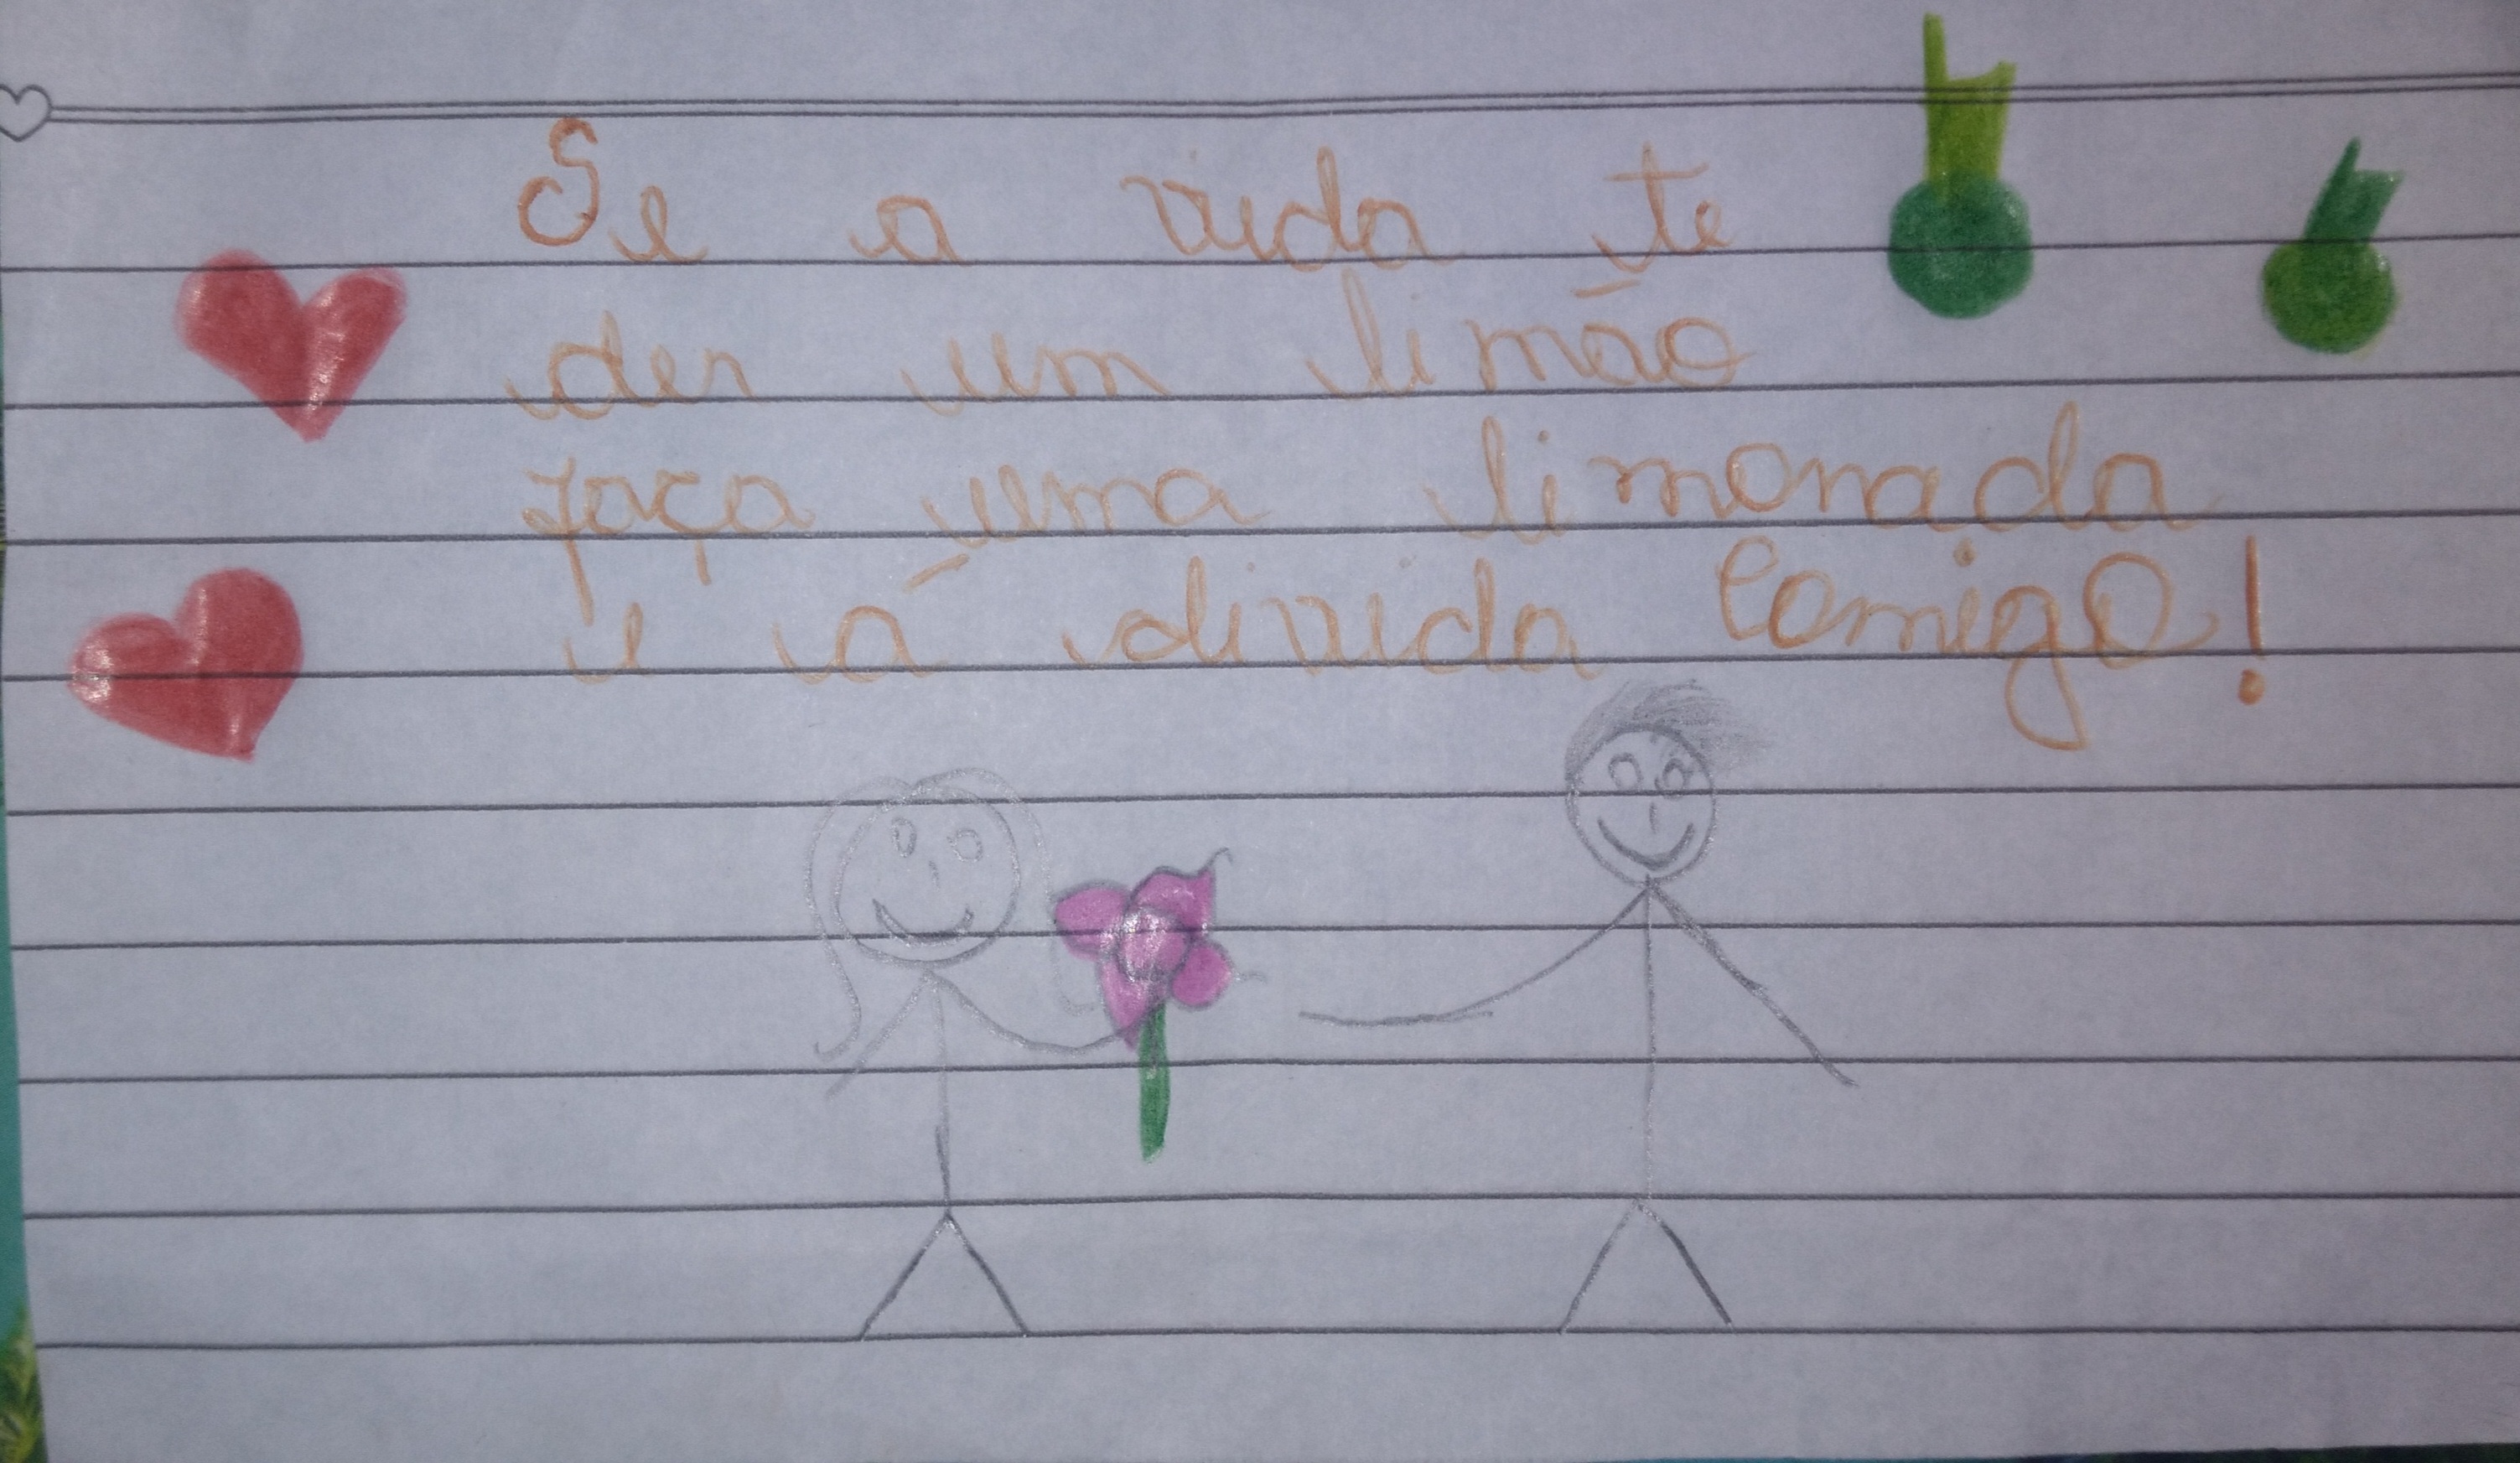 Se a vida te
der um limão
faça uma limonada
e á divida comigo!